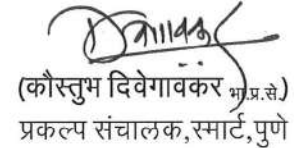 (कौस्तुभ दिवेगावकर भा.प्र.से.)
प्रकल्प संचालक,स्मार्ट,पुणे